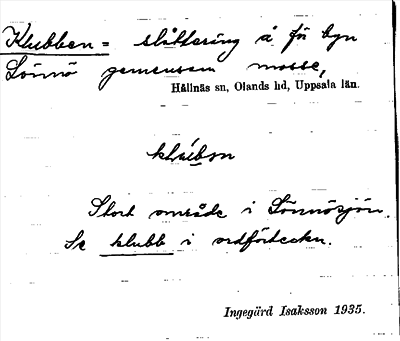 Klubben = slåttering å för byn
Lönnö gemensam mosse,
Hållnäs sn, Olands hd, Uppsala län.
klúbǝn
Stort område i Lönnösjön.
Se klubb i ordförteckn.
Ingegärd Isaksson 1935.